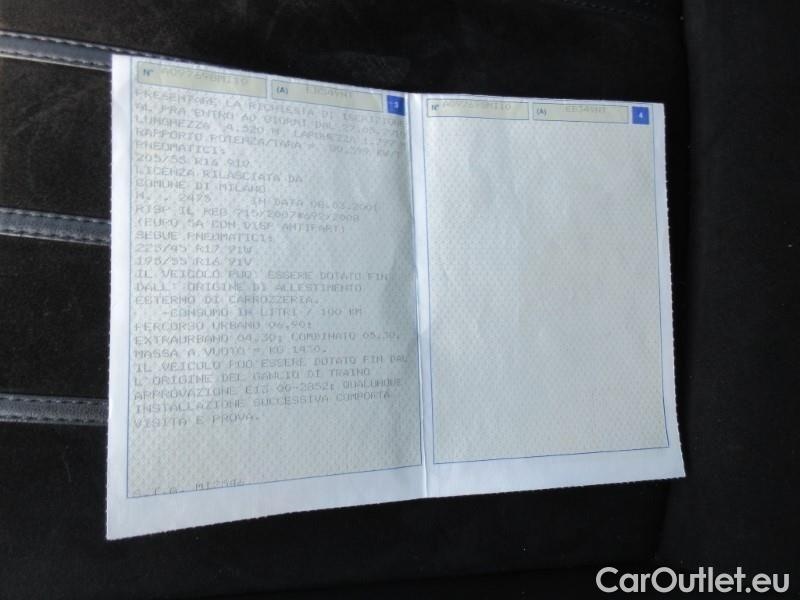 N° A09769BMI10
(A)
3
PRESENTARE LA RICHIESTA DI ISCRIZIONE
AL PRA ENTRO 60 GIORNI DAL 27.05.
LUNGHEZZA 4.520 M. LARGHEZZA 1.799
RAPPORTO POTENZA/TARA =
PNEUMATICI:
205/55 R16 91V
LICENZA RILASCIATA DA
COMUNE DI MILANO
N. . 2475 IN DATA 08.03.2001
RISP IL REG 715/2007*692/2008
(EURO 5A CON DISP ANTIPART)
SEGUE PNEUMATICI:
225/45 R17 91W
195/55 R16 91V
IL VEICOLO PUO' ESSERE DOTATO FIN
DALL' ORIGINE DI ALLESTIMENTO
ESTERNO DI CARROZZERIA.
-CONSUMO IN LITRI / 100 KM
PERCORSO URBANO 06,90;
EXTRAURBANO 04,30; COMBINATO 05,30.
MASSA A VUOTO = KG 1430.
IL VEICOLO PUO' ESSERE DOTATO FIN DAL
L'ORIGINE DEL GANCIO DI TRAINO
APPROVAZIONE E13 00-2852; QUALUNQUE
INSTALLAZIONE SUCCESSIVA COMPORTA
VISITA E PROVA.
S.T.A. MI2546
N° A09769BMI10
(A)
4
CarOutlet.eu